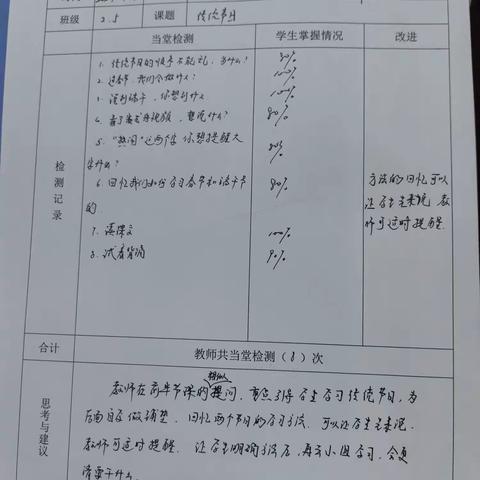 班级 2.5 课题 传统节日
当堂检测 学生掌握情况 改进
1. 传统节日的顺序不乱说,为什么? 80%
2. 过春节,我们会做什么? 100%
3. 说到端午,你想到什么 100%
4. 看了赛龙舟视频,想说什么? 80%
5. "热闹"这两个字你想提醒大
家什么? 80%
6. 回忆我们如何学习春节和端午节
的 80%
7. 读课文 100%
8. 试着背诵 90%
检测记录
方法的回忆可以
让学生来说,教
师可适时提醒.
合计 教师共当堂检测(8)次
思考与建议
教师在前半节课的提问,重点引导学生学习传统节日,为
后面自学做铺垫.回忆两个节日的学习方法,可以让学生来说.
教师可适时提醒.让学生明确方法后,再去小组学习,会更
清楚干什么.